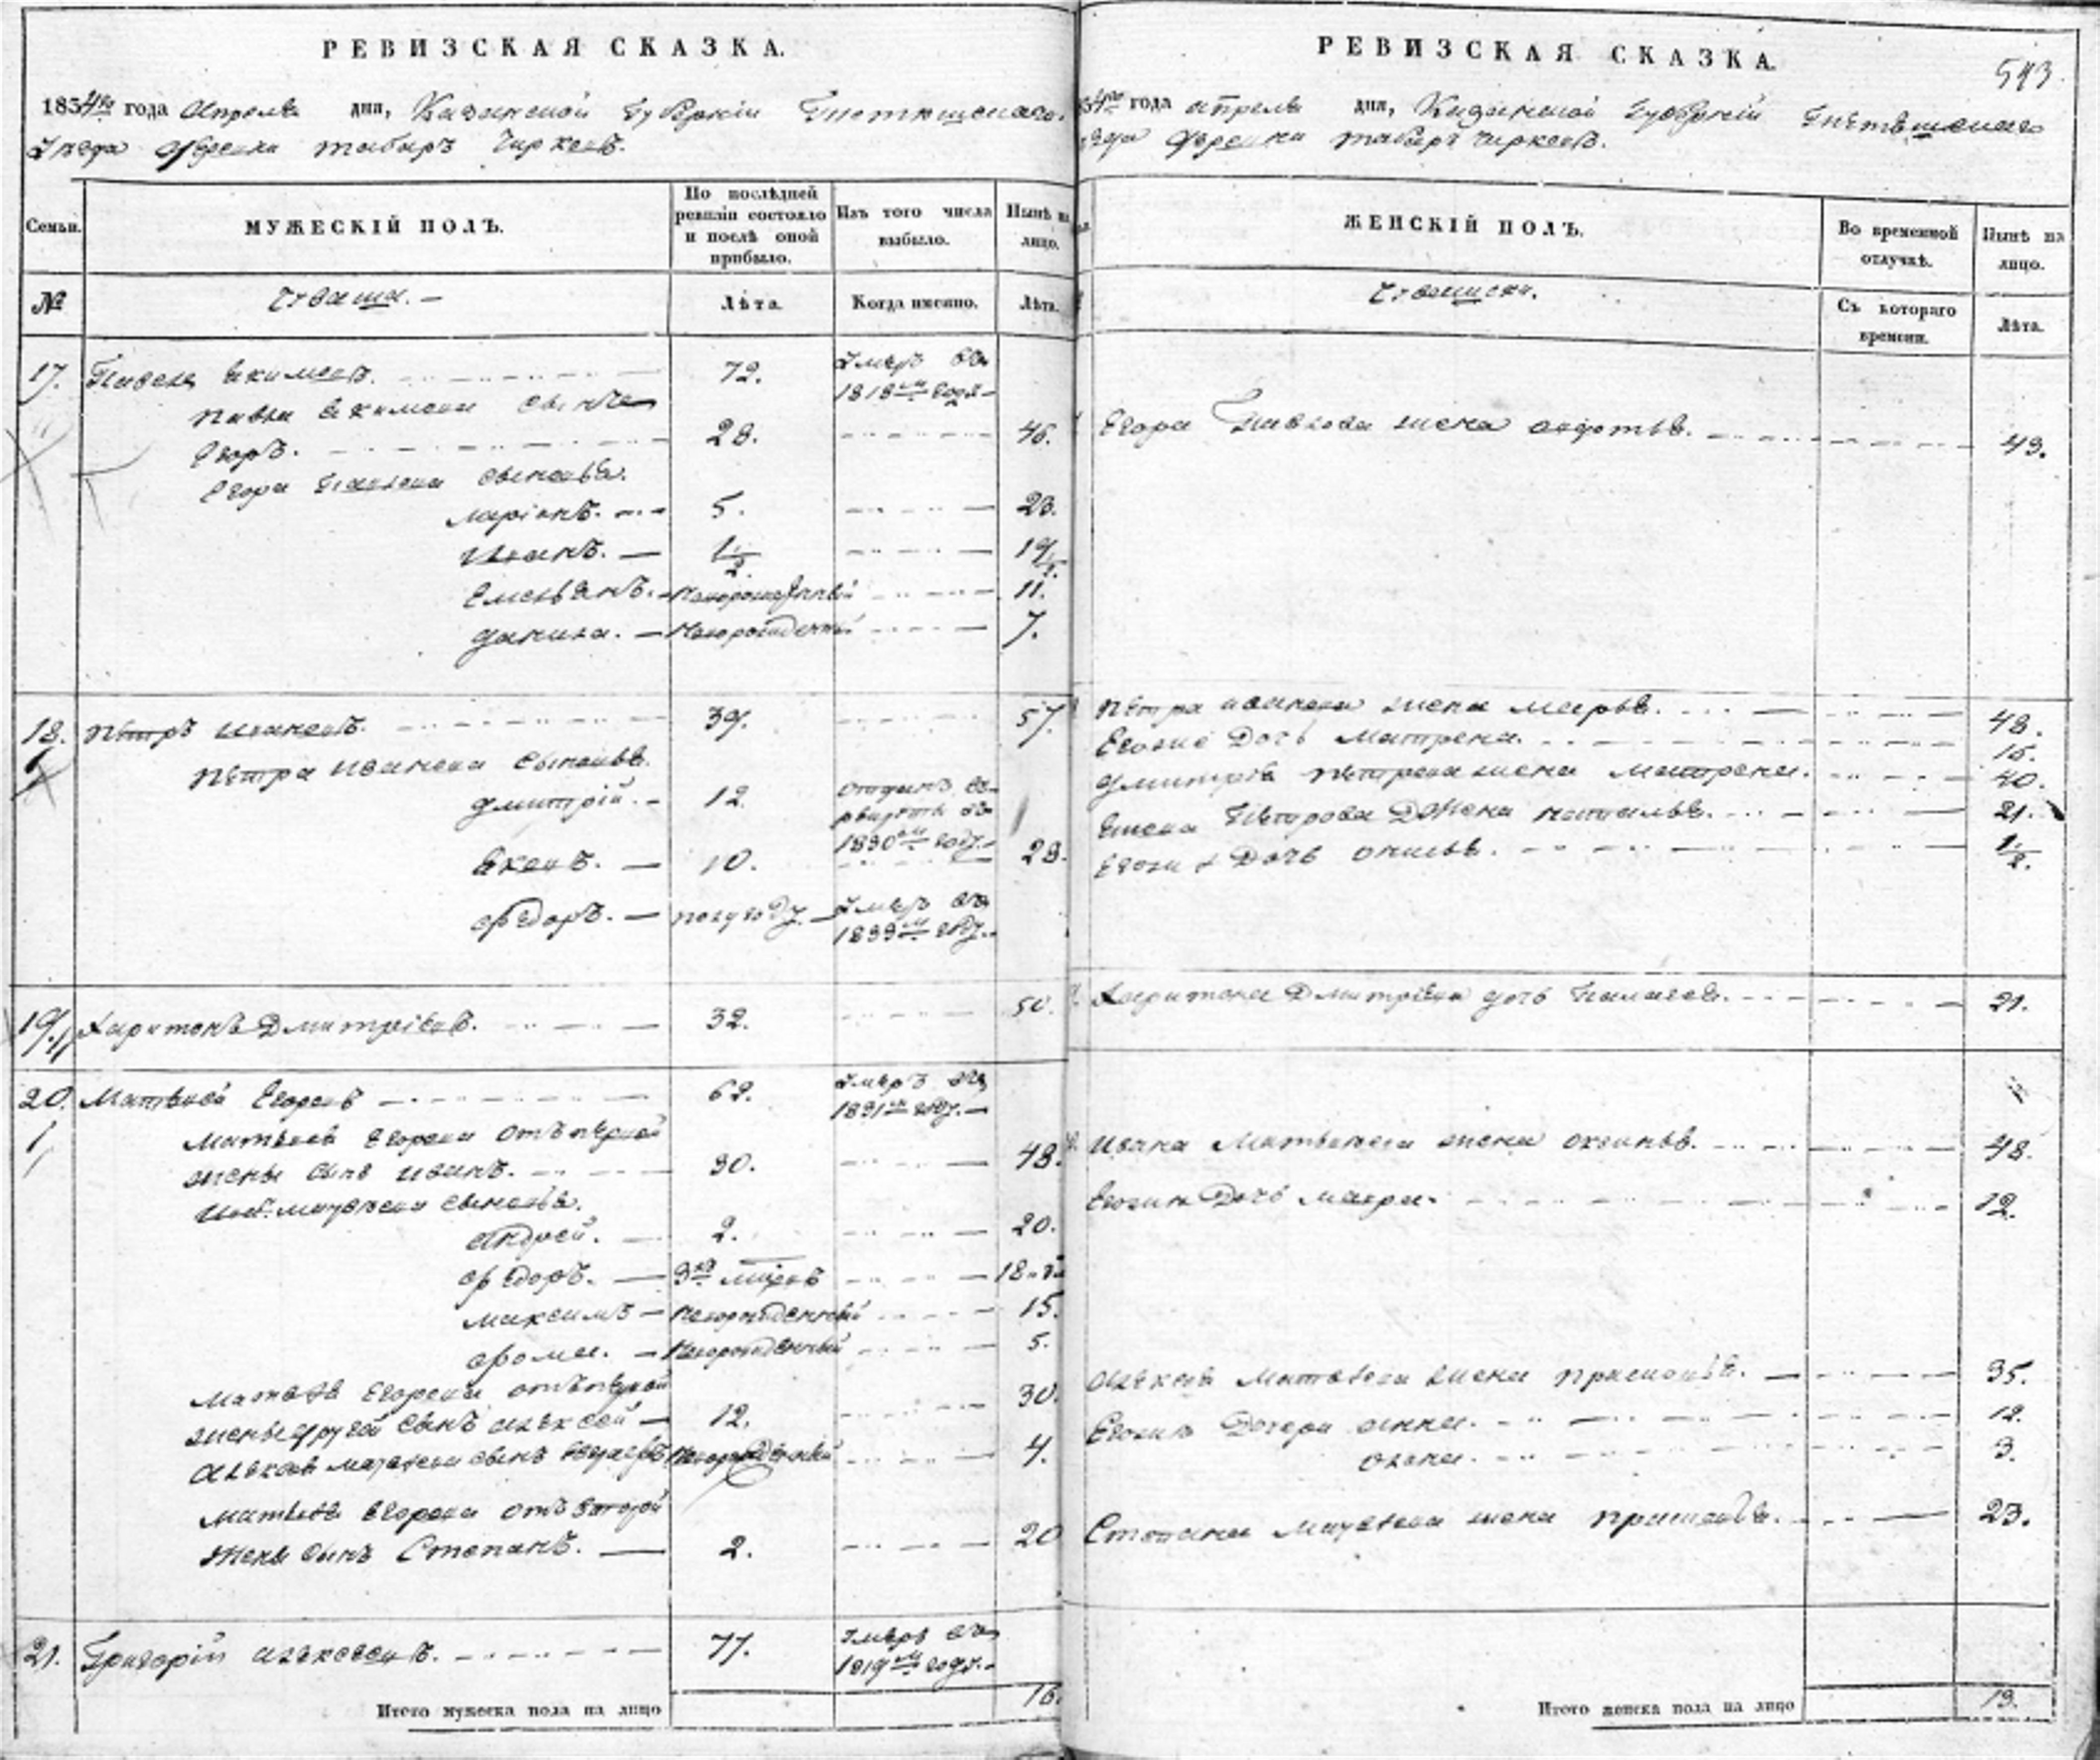 РЕВИЗСКАЯ СКАЗКА.
1834го года Апреля дня, Казанской Губернии Тетюшскаго
Уезда деревни табаръ Чирковъ.
Семьи.
МУЖЕСКІЙ ПОЛЪ.
По послѣдней ревизіи состояло и послѣ оной прибыло.
Изъ того числа выбыло.
Нынѣ на лицо.
№
чуваша. —
Лѣта.
Когда именно.
Лѣта.
17. Павелъ Екимовъ. 72. Умеръ въ
1818м году
Павла Екимова сынъ
Егоръ. 28. 46.
Егора Павлова сыновья.
Маріонъ. 5. 23.
Иванъ. 1/2 19 1/2.
Емельянъ. Новорожденный 11.
Данила. Новорожденный 7.
18. Петръ Ивановъ. 39. 57.
Петра Иванова сыновья.
Дмитрій. 12. Отданъ въ
рекруты въ
1830м году.
Яковъ. 10. 28.
Федоръ. полугоду. Умеръ въ
1839м году.
19. Харитонъ Дмитріевъ. 32. 50.
20. Матвей Егоровъ 62. Умеръ въ
1831м году.
Матвея Егорова отъ первой
жены сынъ Иванъ. 30. 48.
Матвеева сыновья.
Андрей. 2. 20.
Федоръ. 18
Максимъ Новорожденный 15.
Фома. Новорожденный 5.
Матвея Егорова отъ первой 30.
жены другой сынъ Алексей 12.
Алексея Матвеева сынъ Новорожденный 4.
Матвея Егорова отъ второй
жены сынъ Степанъ. 2. 20
21. Григорій Алексеевъ. 77. Умеръ въ
1819м году.
Итого мужеска пола на лицо 16.
РЕВИЗСКАЯ СКАЗКА.
593.
34го года апреля дня, Казанской Губерніи Тетюшскаго
уезда деревни табаръ Чирковъ.
ЖЕНСКІЙ ПОЛЪ.
Во временной отлучкѣ.
Нынѣ на лицо.
Чувашски.
Съ котораго времени.
Лѣта.
Егора Павлова жена Авдотья. 43.
Петра Иванова жена Марья. 48.
Егоже Дочь Матрена. 15.
Дмитрія Петрова жена Матрена. 40.
Якова Петрова жена Наталья. 21.
Егожъ Дочь 1/2.
Харитона Дмитріева дочь Палагея. 21.
Ивана Матвеева жена Оксинья. 48.
Егожъ Дочь Мавра. 12.
Алексея Матвеева жена Прасковья. 35.
Егожъ Дочери Анна. 12.
3.
Степана Матвеева жена Прасковья. 23.
Итого женска пола на лицо 13.